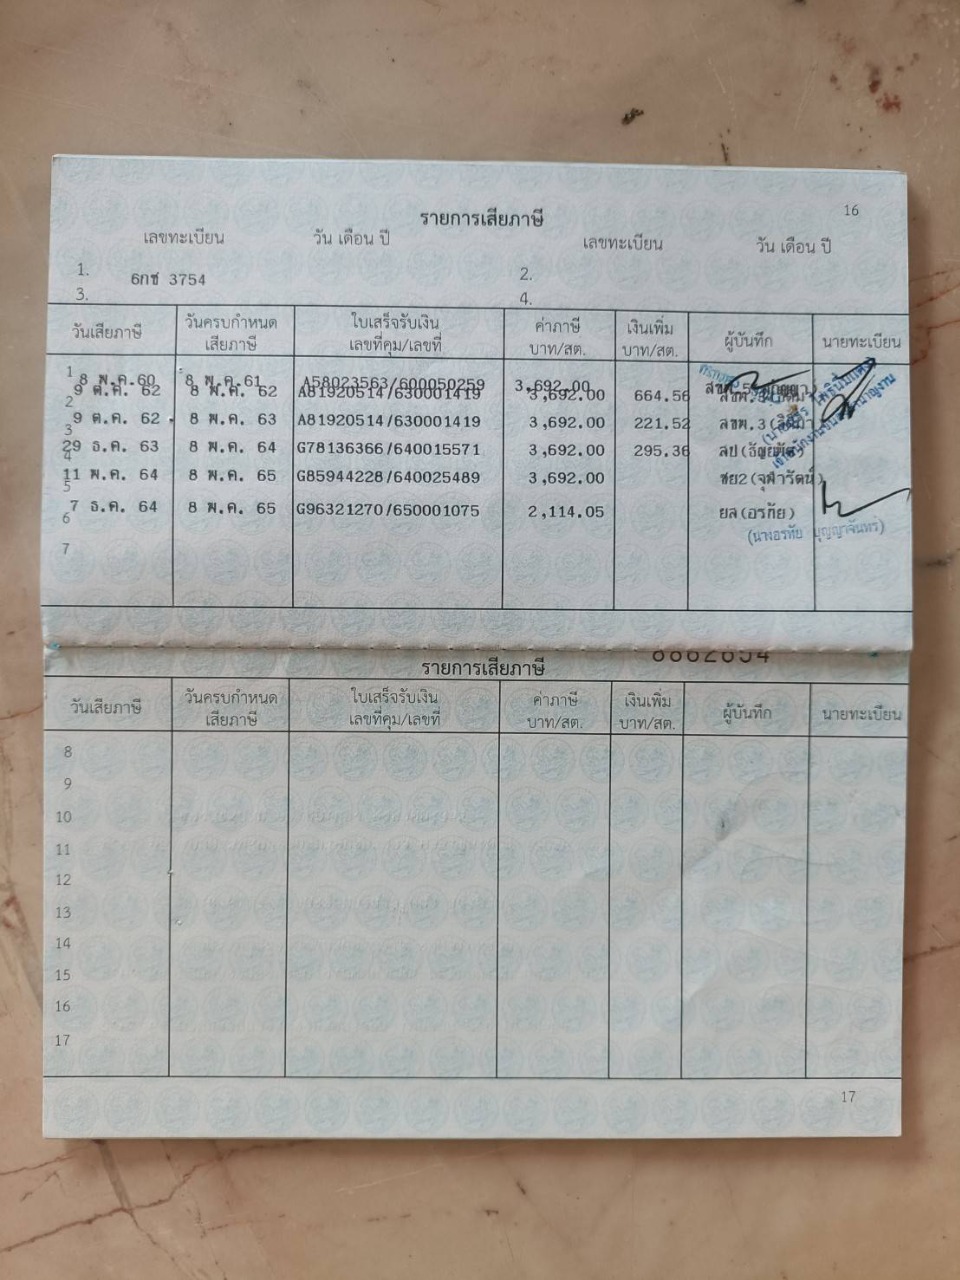 16
รายการเสียภาษี
เลขทะเบียน วัน เดือน ปี เลขทะเบียน วัน เดือน ปี
1. 6กช 3754 2.
3. 4.
วันเสียภาษี วันครบกำหนดเสียภาษี ใบเสร็จรับเงิน เลขที่คุม/เลขที่ ค่าภาษี บาท/สต. เงินเพิ่ม บาท/สต. ผู้บันทึก นายทะเบียน
1 8 พ.ค.60 8 พ.ค.61 A58023563/600050259 3,692.00
9 ต.ค. 62 8 พ.ค. 62 A81920514/630001419 3,692.00 664.56
2
9 ต.ค. 62 8 พ.ค. 63 A81920514/630001419 3,692.00 221.52 สขพ.3
3
29 ธ.ค. 63 8 พ.ค. 64 G78136366/640015571 3,692.00 295.36 สป
4
11 พ.ค. 64 8 พ.ค. 65 G85944228/640025489 3,692.00 ชย2(จุฬารัตน์)
5
7 ธ.ค. 64 8 พ.ค. 65 G96321270/650001075 2,114.05 ยล(อรทัย)
6
(นางอรทัย บุญญาจันทร์)
7
8862654
รายการเสียภาษี
วันเสียภาษี วันครบกำหนดเสียภาษี ใบเสร็จรับเงิน เลขที่คุม/เลขที่ ค่าภาษี บาท/สต. เงินเพิ่ม บาท/สต. ผู้บันทึก นายทะเบียน
8
9
10
11
12
13
14
15
16
17
17